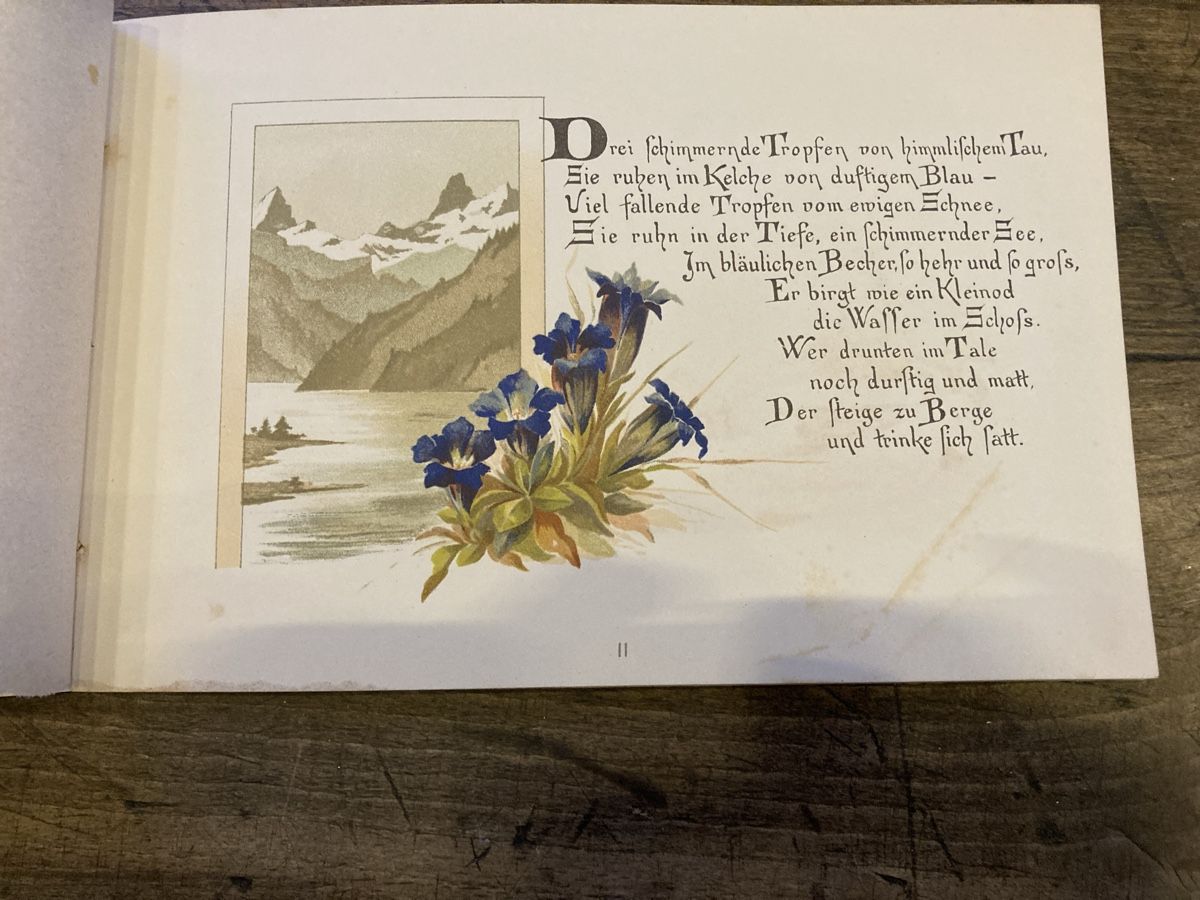 Drei ſchimmernde Tropfen von himmliſchem Tau,
Sie ruhen im Kelche von duftigem Blau –
Viel fallende Tropfen vom ewigen Schnee,
Sie ruhn in der Tiefe, ein ſchimmernder See,
Im bläulichen Becher, ſo hehr und ſo groſs,
Er birgt wie ein Kleinod
die Waſſer im Schoſs.
Wer drunten im Tale
noch durſtig und matt,
Der ſteige zu Berge
und trinke ſich ſatt.
11